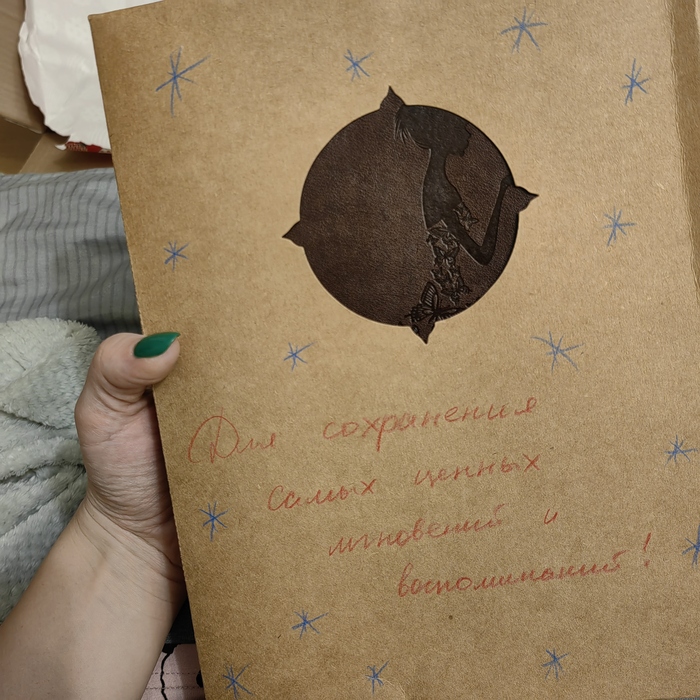 Для сохранения
самых ценных
мгновений и
воспоминаний!